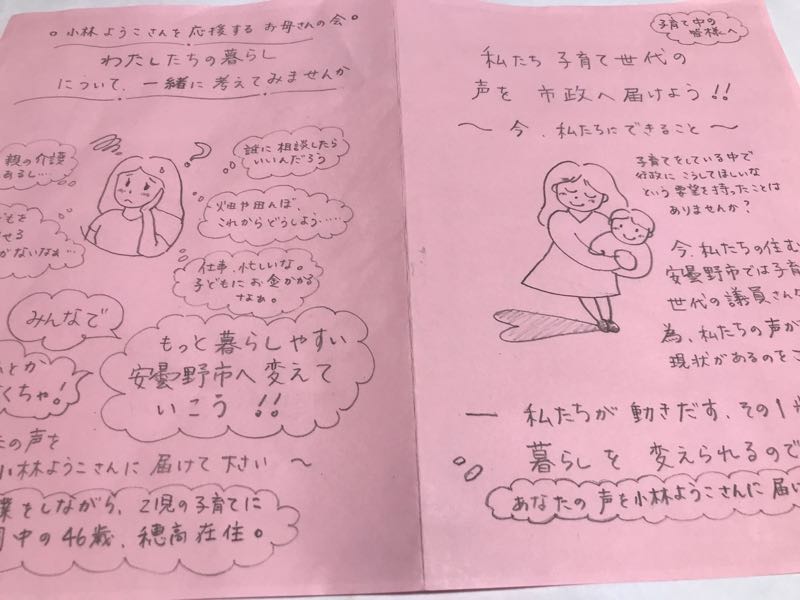 。小林ようこさんを応援する お母さんの会。
わたしたちの暮らし
について、一緒に考えてみませんか
親の介護
あるし…
誰に相談したら
いいんだろう
畑や田んぼ、
これからどうしよう……
どもを
せる
がないなぁ…
仕事、忙しいな。
子どもにお金がかかる
なぁ。
みんなで
とか
くちゃ!
もっと暮らしやすい
安曇野市へ変えて
いこう!!
たの声を
小林ようこさんに届けて下さい ～
業をしながら、2児の子育てに
中の46歳、穂高在住。
子育て中の
皆様へ
私たち 子育て世代の
声を 市政へ届けよう!!
～ 今、私たちにできること ～
子育てをしている中で
行政に こうしてほしいな
という要望を持ったことは
ありませんか?
今、私たちの住む
安曇野市では子育
世代の議員さんが
為、私たちの声が
現状があるのをご
― 私たちが 動きだす、その1歩
暮らしを 変えられるので
あなたの声を小林ようこさんに届け